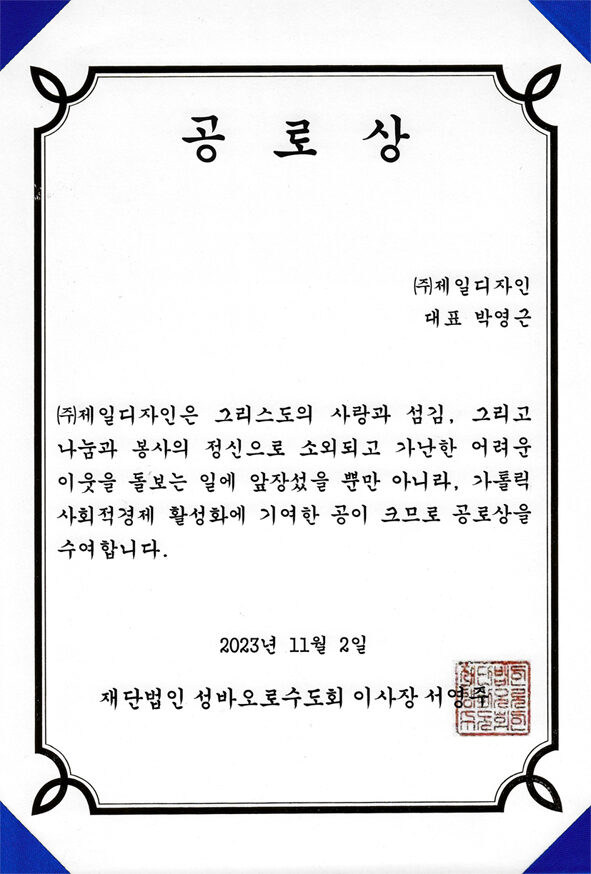 공로상
㈜제일디자인
대표 박영근
㈜제일디자인은 그리스도의 사랑과 섬김, 그리고
나눔과 봉사의 정신으로 소외되고 가난한 어려운
이웃을 돌보는 일에 앞장섰을 뿐만 아니라, 가톨릭
사회적경제 활성화에 기여한 공이 크므로 공로상을
수여합니다.
2023년 11월 2일
재단법인 성바오로수도회 이사장 서영주